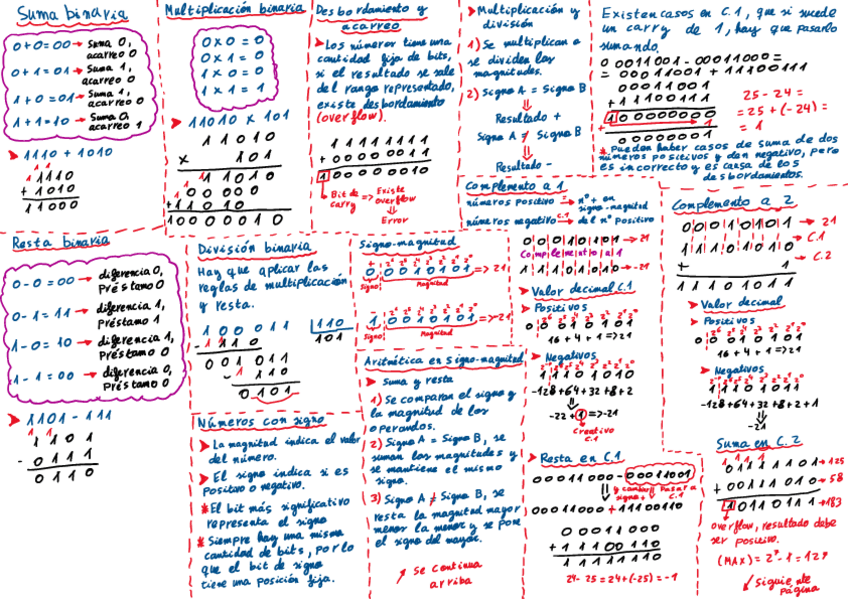 Suma binaria
0+0=00 → Suma 0,
acarreo 0
0+1=01 → Suma 1,
acarreo 0
1+0=01 → Suma 1,
acarreo 0
1+1=10 → Suma 0,
acarreo 1
➤ 1110 + 1010
1 1
1110
+ 1010
11000
Resta binaria
0-0=00 → diferencia 0,
Préstamo 0
0-1=11 → diferencia 1,
Préstamo 1
1-0=10 → diferencia 1,
Préstamo 0
1-1=00 → diferencia 0,
Préstamo 0
➤ 1101 - 111
1 1
1101
- 0111
0110
Multiplicación binaria
0x0=0
0x1=0
1x0=0
1x1=1
➤ 11010 x 101
11010
x 101
11010
00000
+11010
10000010
División binaria
Hay que aplicar las
reglas de multiplicación
y resta.
100011 110
- 110 101
001011
- 110
0101
Números con signo
➤ La magnitud indica el valor
del número.
➤ El signo indica si es
positivo o negativo.
* El bit más significativo
representa el signo
* Siempre hay una misma
cantidad de bits, por lo
que el bit de signo
tiene una posición fija.
Desbordamiento y
acarreo
➤ Los números tiene una
cantidad fija de bits,
si el resultado se sale
del rango representado,
existe desbordamiento
(overflow).
11111111
+ 00000011
100000010
Bit de carry => Existe overflow
⇓
Error
Signo-magnitud
00010101 => 21
Signo Magnitud
10010101 => -21
Signo Magnitud
Aritmética en signo-magnitud
➤ Suma y resta
1) Se comparan el signo y
la magnitud de los
operandos.
2) Signo A = Signo B, se
suman las magnitudes y
se mantiene el mismo
signo.
3) Signo A ≠ Signo B, se
resta la magnitud mayor
menos la menor y se pone
el signo del mayor.
↗ Se continua
arriba
➤ Multiplicación y
división
1) Se multiplican o
se dividen las
magnitudes.
2) Signo A = Signo B
⇓
Resultado +
Signo A ≠ Signo B
⇓
Resultado -
Complemento a 1
números positivo → nº + en
signo-magnitud
números negativo → C.1 del nº positivo
00010101 → 21
Complemento a 1
11101010 → -21
➤ Valor decimal C.1
➤ Positivos
00010101
16+4+1 => 21
➤ Negativos
11101010
-128+64+32+8+2
⇓
-22+1 => -21
C.1
➤ Resta en C.1
00011000 - 00011001
00011000 + 11100110
00011000
+ 11100110
11111110
24-25 = 24+(-25) = -1
Existen casos en C.1, que si sucede
un carry de 1, hay que pasarlo
sumando.
00011001 - 00011000 =
= 00011001 + 11100111
00011001
+ 11100111
100000000
+ 1
00000001
25-24 =
= 25+(-24) =
= 1
* Pueden haber casos de suma de dos
números positivos y den negativo, pero
es incorrecto y es causa de los
desbordamientos.
Complemento a 2
00010101 → 21
11101010 → C.1
+ 1 → C.2
11101011
➤ Valor decimal
➤ Positivos
00010101
16+4+1 => 21
➤ Negativos
11101011
-128+64+32+8+2+1
⇓
-21
Suma en C.2
01111101 → 125
+ 00111010 → 58
10110111 → 183
overflow, resultado debe
ser positivo.
(MAX) = 2⁷ - 1 = 127
↙ Siguiente
página